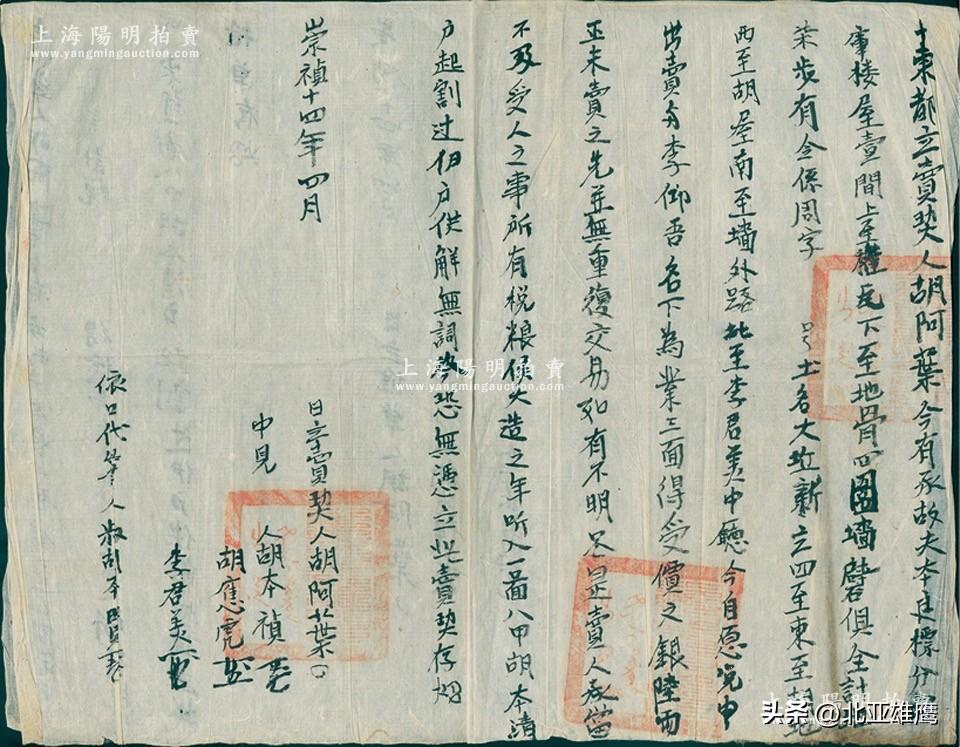 十東都立賣契人胡阿葉今有承故夫本莊標分
樓屋壹間上至椽瓦下至地骨四圍墻磚俱全計地
柒步有全係周字 号土名大坵新立四至東至地
西至胡屋南至墻外路北至李君美中廳今自愿凂中
出賣与李仰吾名下為業三面得受價文銀陸両
正未賣之先並無重復交易如有不明尽是賣人承當
不及受人之事所有稅粮候大造之年听入一啚八甲胡本清
户起割过伊户供解無詞恐無憑立此賣契存炤
崇禎十四年四月
日立賣契人胡阿葉
中見人胡本禎
胡應虎
李君美
依口代筆人胡本
上海陽明拍賣
www.ymauction.com
上海陽明拍賣
www.ymauction.com
上海陽明拍賣
头条 @北亚雄鹰